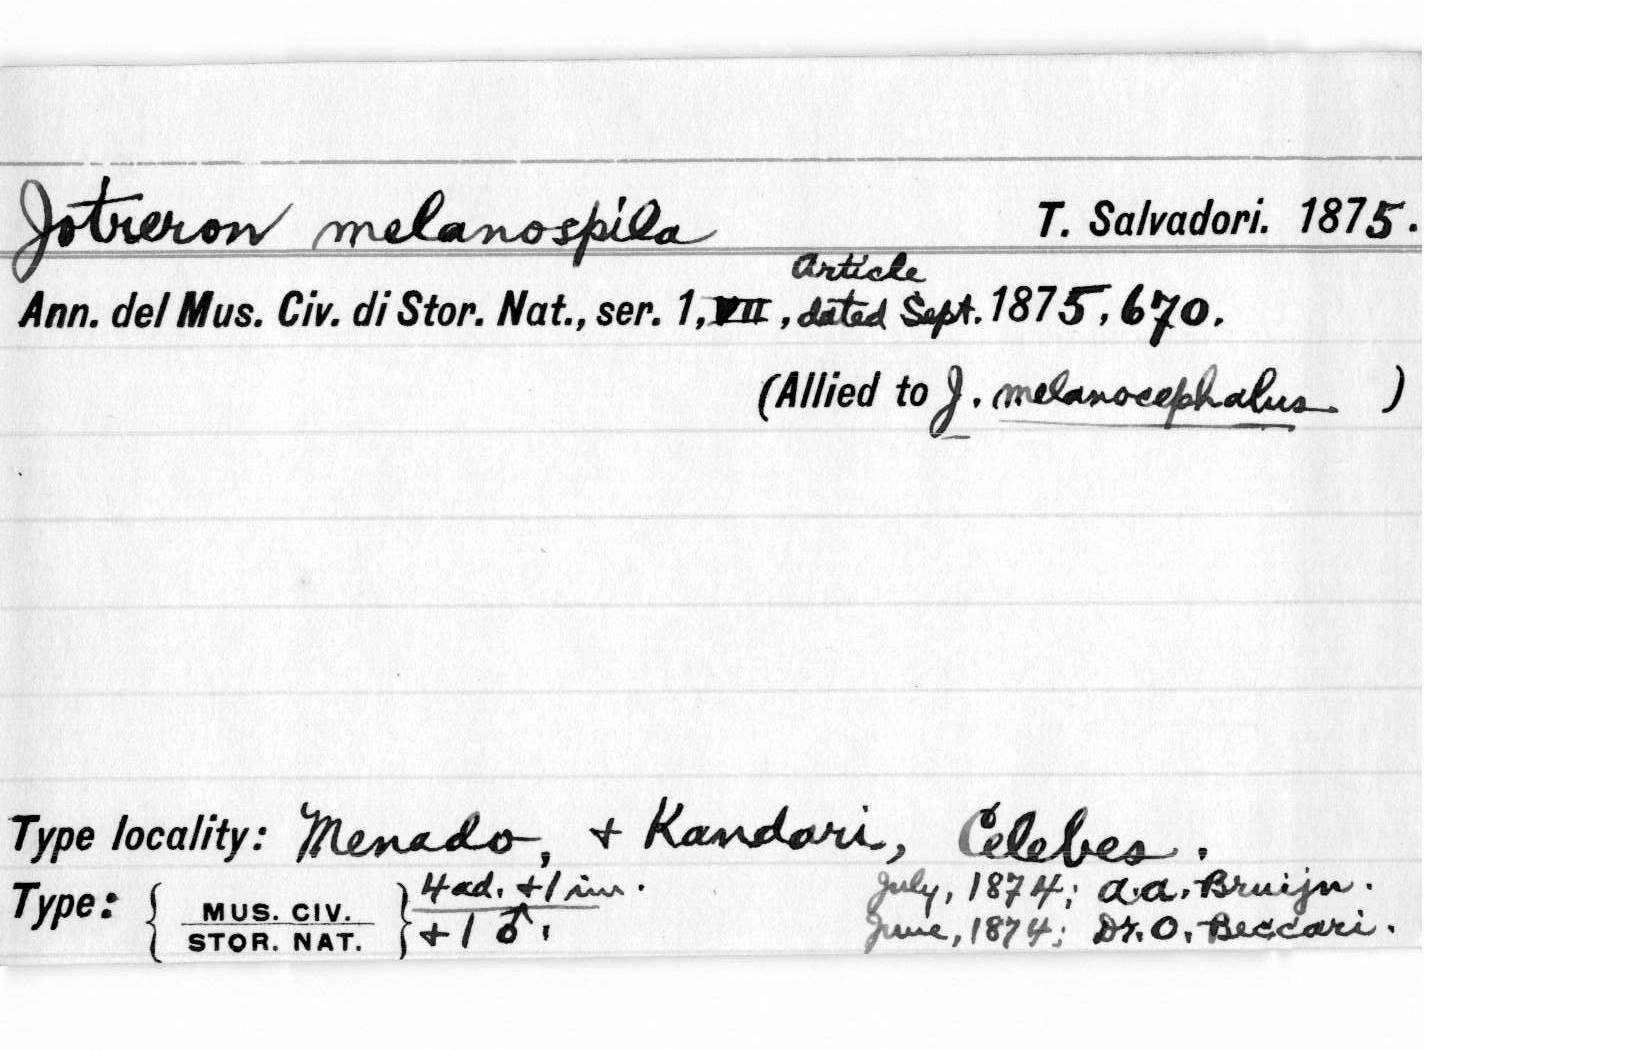 Jotreron melanospila T. Salvadori. 1875.
Article
Ann. del Mus. Civ. di Stor. Nat., ser. 1, VII, dated Sept. 1875, 670.
(Allied to J. melanocephalus )
Type locality: Menado, + Kandari, Celebes.
Type: { MUS. CIV. STOR. NAT. } 4 ad. + 1 im. July, 1874; A.A. Bruijn.
+ 1 ♂. June, 1874; Dr. O. Beccari.